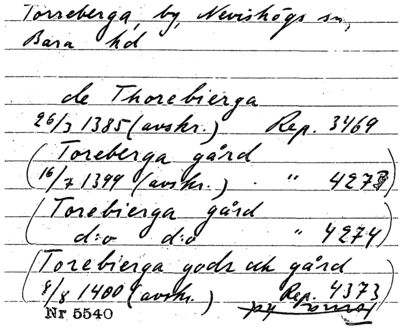 Torreberga, by, Nevishögs sn,
Bara hd
de Thorebierga
26/3 1385 (avskr.) Rep. 3469
(Toreberga gård
16/7 1399 (avskr.) " 4273)
(Torebierga gård
d:o d:o " 4274)
(Torebierga gods och gård
8/8 1400 (avskr.) Rep. 4373)
Nr 5540